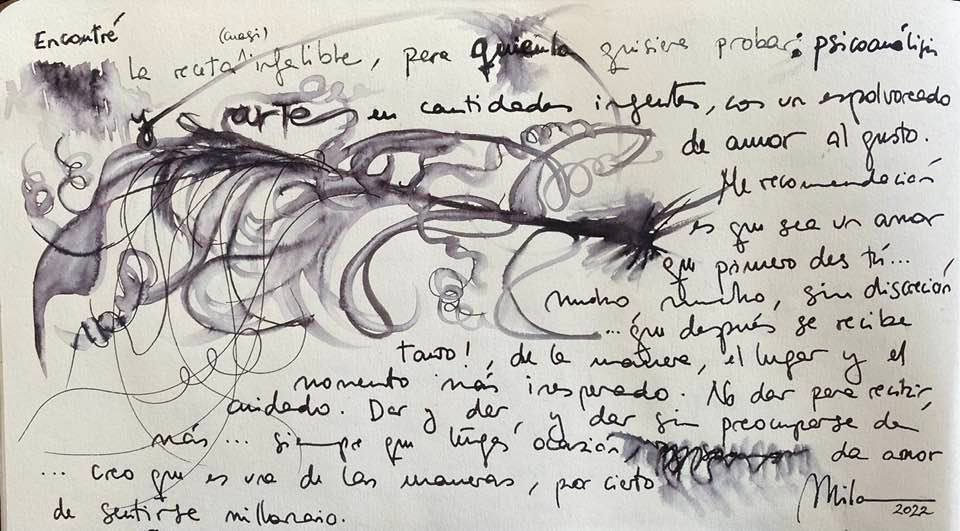 Encontré
(cuasi)
la receta infalible, para quien la quisiera probar: psicoanálisis
y arte en cantidades ingentes, con un espolvoreado
de amor al gusto.
Mi recomendación
es que sea un amor
que primero des tú...
mucho mucho, sin discreción
... que después se recibe
tanto!, de la manera, el lugar y el
momento más inesperado. No dar para recibir,
cuidado. Dar y dar, y dar sin preocuparse de
más... siempre que tengas ocasión, da amor
... creo que es una de las maneras, por cierto
de sentirse millonario.
Mila
2022